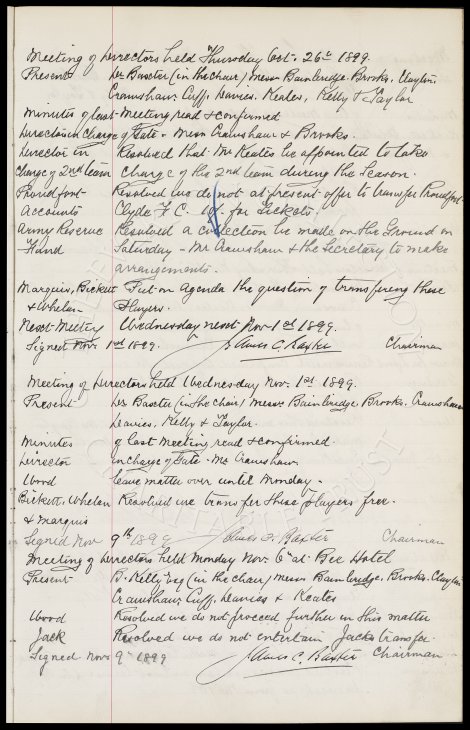 Meeting of Directors held Thursday Oct. 26th 1899.
Present Dr Baxter (in the chair) Messrs Bainbridge. Brooks. Clayton.
Crawshaw. Cuff. Davies. Keates. Kelly & Taylor
Minutes of last Meeting read & confirmed
Director in Charge of Gate - Messrs Crawshaw & Brooks.
Director in Resolved that Mr Keates be appointed to take
Charge of 2nd team charge of the 2nd team during the Season.
Proudfoot Resolved we do not at present offer to transfer Proudfoot.
Accounts Clyde F.C. for Tickets
Army Reserve Resolved a collection be made on the Ground on
Fund Saturday - Mr Crawshaw & the Secretary to make
arrangements.
Marquis, Bickett Put on Agenda the question of transfering these
& Whelan Players.
Next Meeting Wednesday next Nov 1st 1899.
Signed Nov. 1st 1899. James C. Baxter Chairman
Meeting of Directors held Wednesday Nov. 1st 1899.
Present Dr Baxter (in the Chair) Messrs Bainbridge. Brooks. Crawshaw
Davies. Kelly & Taylor.
Minutes of last Meeting read & confirmed.
Director in charge of Gate - Mr Crawshaw
Wood leave matter over until Monday -
Bickett. Whelan Resolved we transfer these Players free.
& Marquis
Signed Nov 9th 1899 James C. Baxter Chairman
Meeting of Directors held Monday Nov. 6th at Bee Hotel
Present D. Kelly Esq (in the chair) Messrs Bainbridge. Brooks. Clayton
Crawshaw. Cuff. Davies & Keates
Wood Resolved we do not proceed further in this matter
Jack Resolved we do not entertain Jacks transfer.
Signed Nov 9th 1899 James C. Baxter Chairman